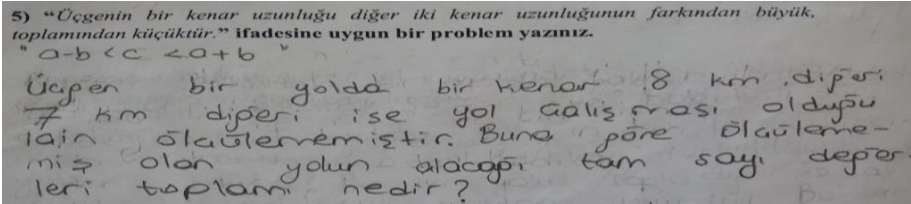 5) “Üçgenin bir kenar uzunluğu diğer iki kenar uzunluğunun farkından büyük,
toplamından küçüktür.” ifadesine uygun bir problem yazınız.
" a-b < c < a+b "
Üçgen bir yolda bir kenar 8 km diğeri
7 km diğeri ise yol çalışması olduğu
için ölçülememiştir. Buna göre ölçüleme-
miş olan yolun alacağı tam sayı değer
leri toplamı nedir?